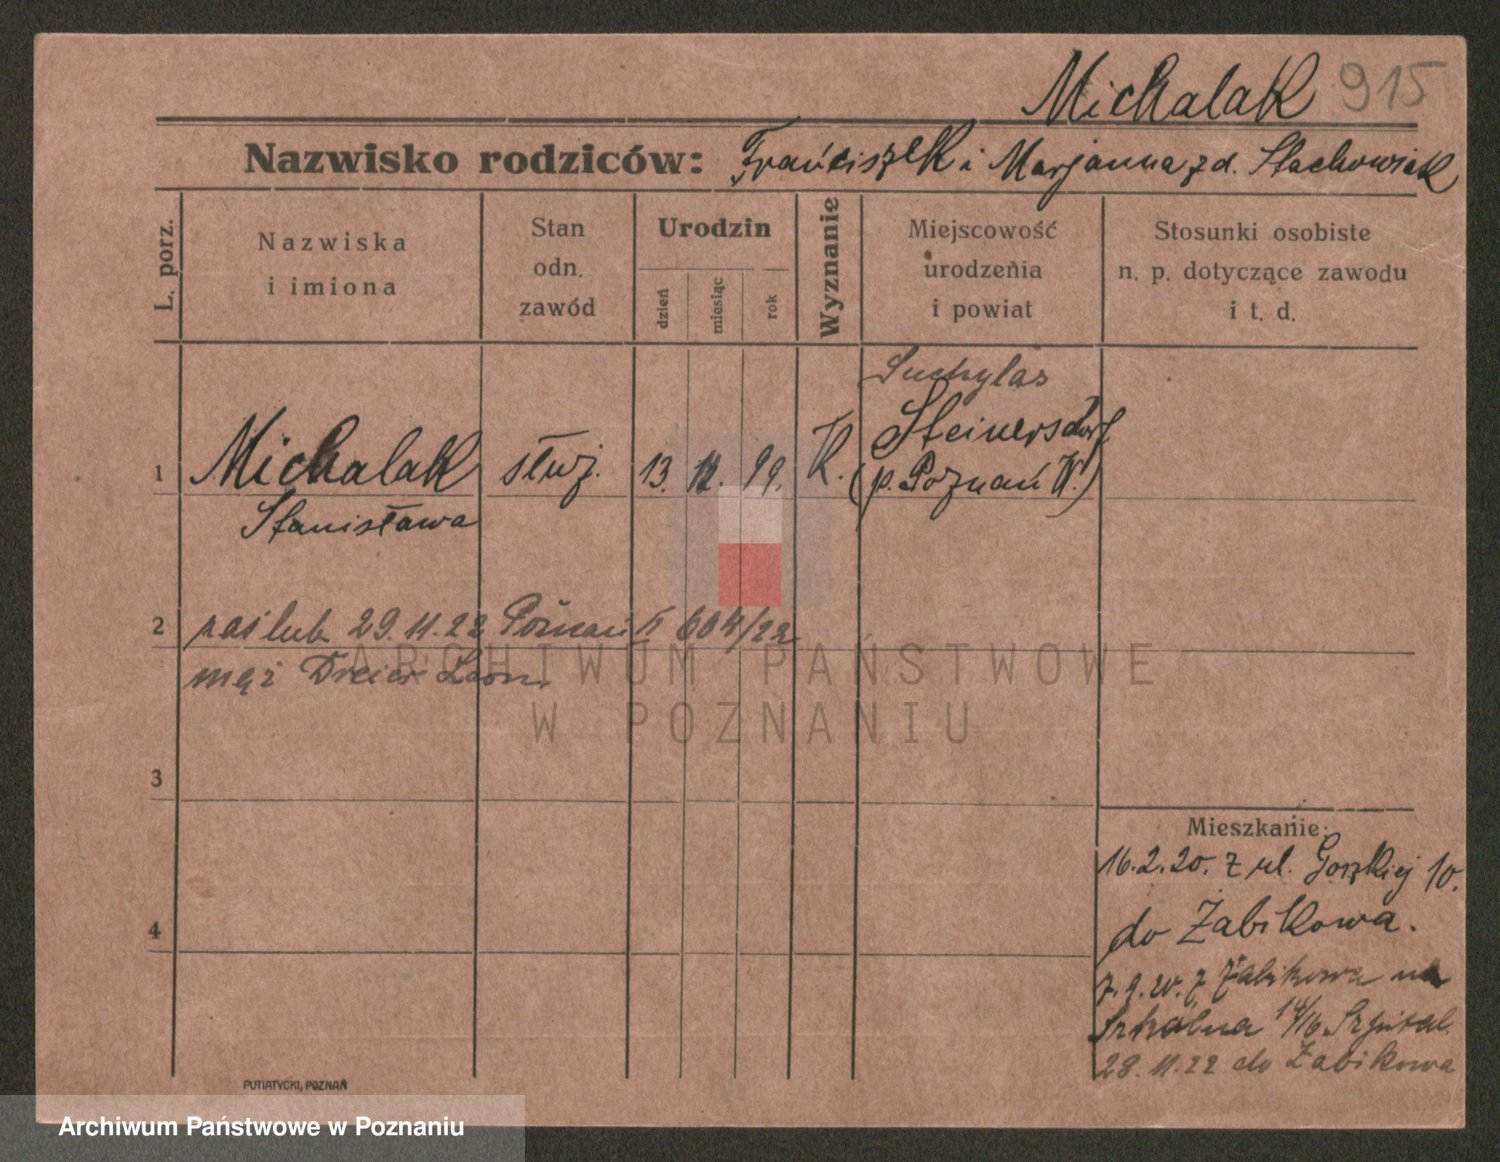 Michalak 915
Nazwisko rodziców: Franciszek i Marjanna z d. Stachowiak
L. porz.
Nazwiska
i imiona
Stan
odn.
zawód
Urodzin
dzień
miesiąc
rok
Wyznanie
Miejscowość
urodzenia
i powiat
Stosunki osobiste
n. p. dotyczące zawodu
i t. d.
Suchylas
1 Michalak służ. 13. 11. 99. K. Steinersdorf
(p. Poznań W.)
Stanisława
2 zaślub 29.11.22 Poznań II 604/22
mąż Leon
3
Mieszkanie:
16.2.20. z ul. 10.
4
do Żabikowa.
7.9.20. z Żabikowa na
Szkolna 14/16 Szpital.
28.11.22 do Żabikowa
PUTIATYCKI, POZNAŃ
ARCHIWUM PAŃSTWOWE
W POZNANIU
Archiwum Państwowe w Poznaniu